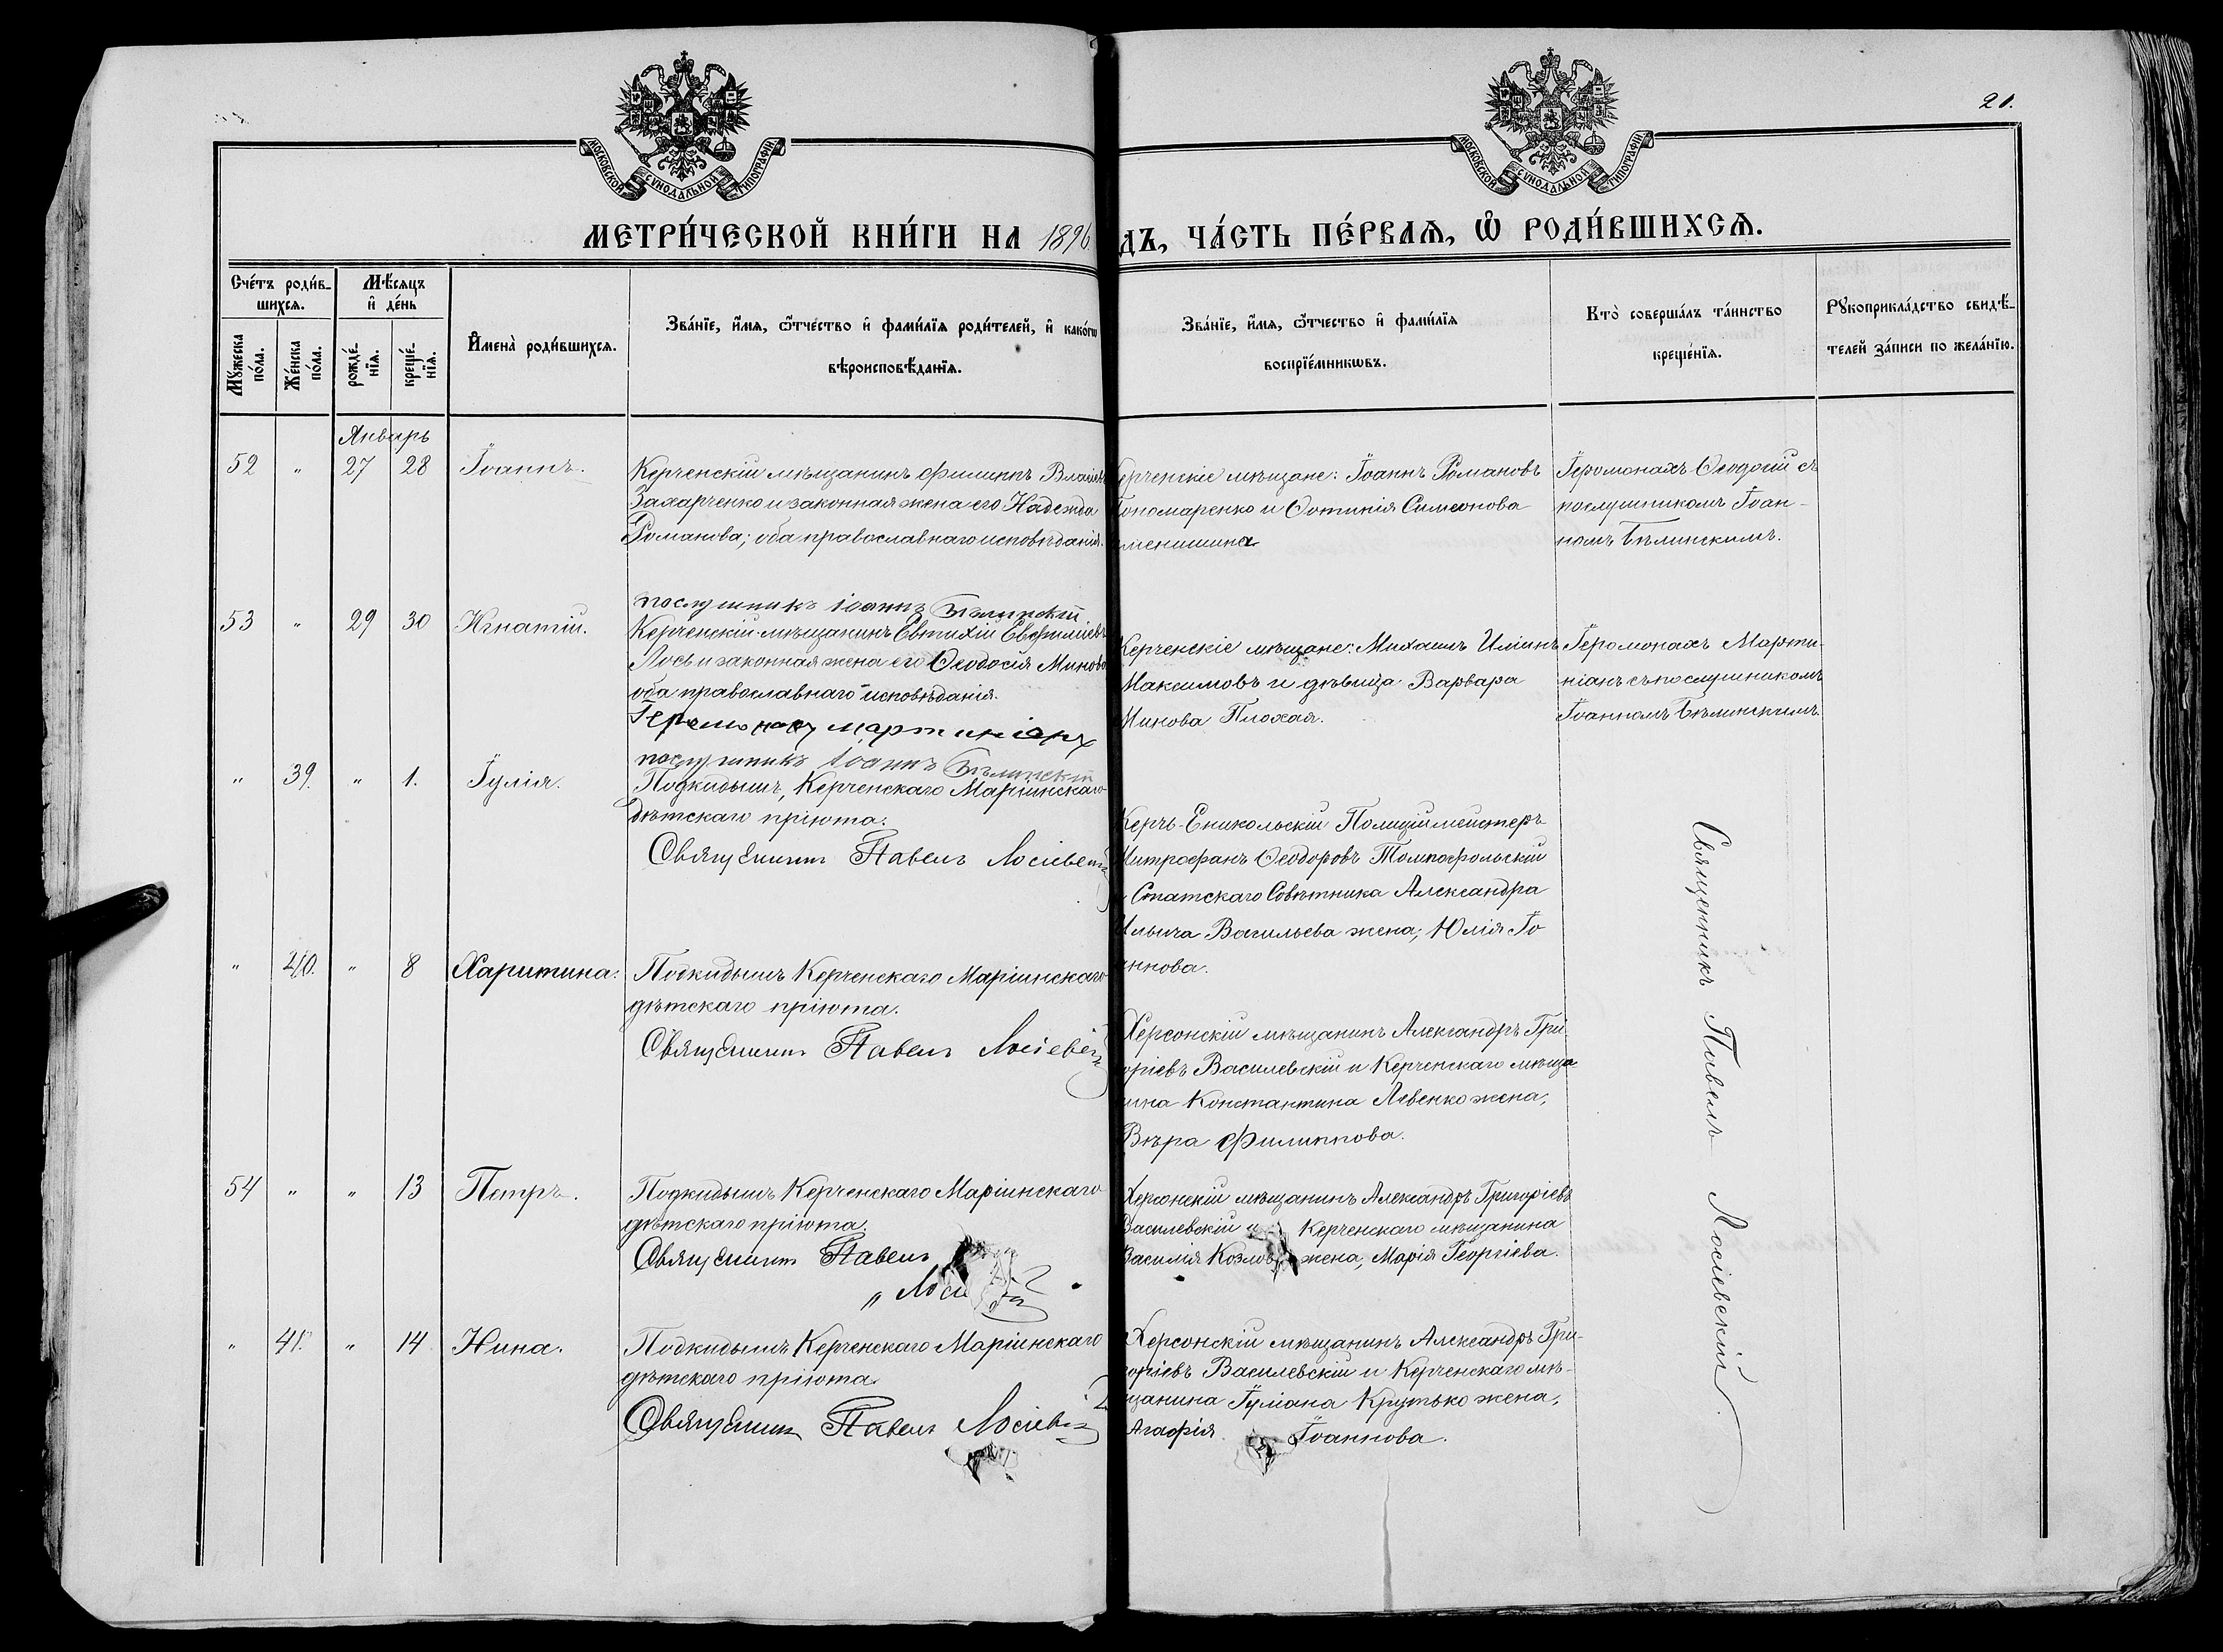 21.
МОСКОВСКОЙ СѴНОДАЛЬНОЙ ТИПОГРАФІИ
МОСКОВСКОЙ СѴНОДАЛЬНОЙ ТИПОГРАФІИ
МЕТРИ́ЧЕСКОЙ КНИ́ГИ НА 1896
ДЪ, ЧА́СТЬ ПЕ́РВАѦ, Ѡ҆ РОДИ́ВШИХСѦ.
Сче́тъ роди́в-
шихсѧ.
Мꙋ́жеска
по́ла.
Же́нска
по́ла.
Мѣ́сѧцъ
и҆ де́нь
рожде́-
нїѧ.
креще́-
нїѧ.
И҆мена̀ роди́вшихсѧ.
Зва́нїе, и҆́мѧ, ѻ҆́тчество и҆ фамѝлїѧ роди́телей, и҆ како́гѡ
вѣроисповѣ́данїѧ.
Зва́нїе, и҆́мѧ, ѻ҆́тчество и҆ фамѝлїѧ
воспрїе́мникѡвъ.
Кто̀ соверша́лъ та́инство
креще́нїѧ.
Рꙋкоприкла́дство свидѣ́-
телей за́писи по жела́нїю.
Январь
52 " 27 28 Іоаннъ.
Керченскій мѣщанинъ Филиппъ Власіевъ
Захарченко и законная жена его Надежда
Романова; оба православнаго исповѣданія.
ерченскіе мѣщане: Іоаннъ Романовъ
ономаренко и Фотинія Симеонова
Іеромонахъ Ѳеодосій съ
послушникомъ Іоан-
номъ Бѣлинскимъ.
послушникъ Іоаннъ Бѣлинскій
53 " 29 30 Игнатій.
Керченскій мѣщанинъ Евтихій Евфиміевъ
Лось и законная жена его Ѳеодосія Минова
оба православнаго исповѣданія.
Іеромонахъ Мартиніанъ
послушникъ Іоаннъ Бѣлинскій
Керченскіе мѣщане: Михаилъ Иліинъ
Максимовъ и дѣвица Варвара
Минова Плохая.
Іеромонахъ Марти-
ніанъ съ послушникомъ
Іоанномъ Бѣлинскимъ.
" 39. " 1. Іулія.
Подкидышъ, Керченскаго Маріинскаго
дѣтскаго пріюта.
Священникъ Павелъ Лосіевскій
Керчь-Еникольскій Полиціймейстеръ
Митрофанъ Ѳеодоровъ
Статскаго Совѣтника Александра
Ильича Васильева жена, Юлія Іо
ннова.
" 40. " 8 Харитина.
Подкидышъ Керченскаго Маріинскаго
дѣтскаго пріюта.
Священникъ Павелъ Лосіевскій
Херсонскій мѣщанинъ Александръ Гри-
оріевъ Василевскій и Керченскаго мѣща
ина Константина Левенко жена,
Вѣра Филиппова.
54 " " 13 Петръ.
Подкидышъ Керченскаго Маріинскаго
дѣтскаго пріюта.
Священникъ Павелъ
" Лосі
Херсонскій мѣщанинъ Александръ Григоріевъ
Василевскій и Керченскаго мѣщанина
Василія Козлов жена, Марія Георгіева.
" 41. " 14 Нина.
Подкидышъ Керченскаго Маріинскаго
дѣтскаго пріюта.
Священникъ Павелъ Лосіевскій
Херсонскій мѣщанинъ Александръ Гри-
оріевъ Василевскій и Керченскаго мѣ-
щанина Іуліана Крутько жена,
Агафія Іоаннова.
Священникъ Павелъ Лосіевскій.